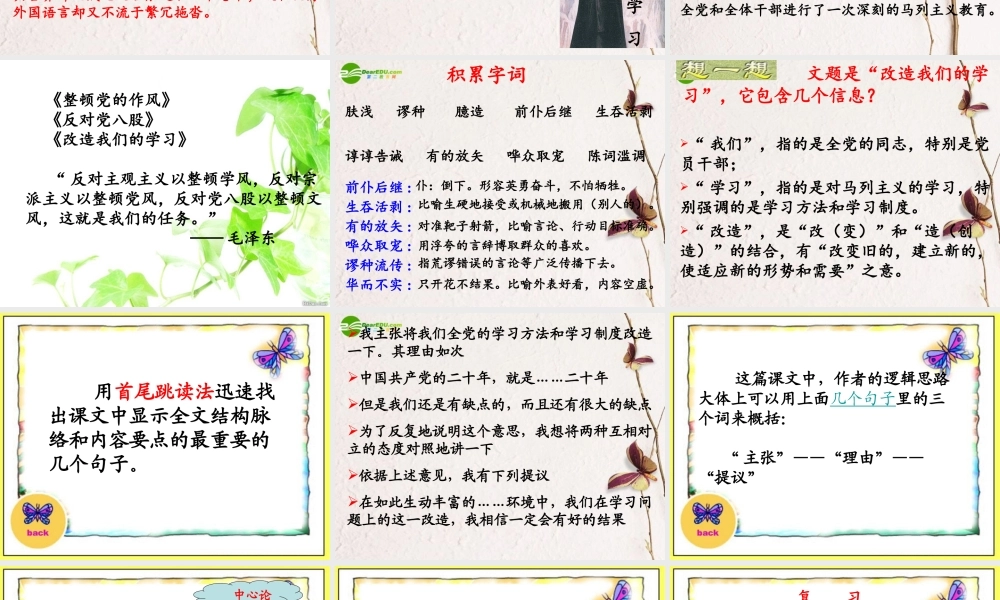 外国语言却又不流于繁冗拖沓。
学
习
全党和全体干部进行了一次深刻的马列主义教育。
《整顿党的作风》
《反对党八股》
《改造我们的学习》
“ 反对主观主义以整顿学风，反对宗
派主义以整顿党风，反对党八股以整顿文
风，这就是我们的任务。”
—— 毛泽东
DearEDU.com
积累字词
肤浅 谬种 臆造 前仆后继 生吞活剥
谆谆告诫 有的放矢 哗众取宠 陈词滥调
前仆后继：仆：倒下。形容英勇奋斗，不怕牺牲。
生吞活剥：比喻生硬地接受或机械地搬用（别人的）。
有的放矢：对准靶子射箭，比喻言论、行动目标准确。
哗众取宠：用浮夸的言辞博取群众的喜欢。
谬种流传：指荒谬错误的言论等广泛传播下去。
华而不实：只开花不结果。比喻外表好看，内容空虚。
想一想
文题是“改造我们的学
习”，它包含几个信息？
“ 我们”，指的是全党的同志，特别是党
员干部；
“ 学习”，指的是对马列主义的学习，特
别强调的是学习方法和学习制度。
“ 改造”，是“改（变）”和“造（创
造）”的结合，有“改变旧的，建立新的，
使适应新的形势和需要”之意。
用首尾跳读法迅速找
出课文中显示全文结构脉
络和内容要点的最重要的
几个句子。
back
DearEDU.com
我主张将我们全党的学习方法和学习制度改造
一下。其理由如次
中国共产党的二十年，就是……二十年
但是我们还是有缺点的，而且还有很大的缺点
为了反复地说明这个意思，我想将两种互相对
立的态度对照地讲一下
依据上述意见，我有下列提议
在如此生动丰富的……环境中，我们在学习问
题上的这一改造，我相信一定会有好的结果
这篇课文中，作者的逻辑思路
大体上可以用上面几个句子里的三
个词来概括：
“ 主张”——“理由”——
“提议”
back
中心论
复 习